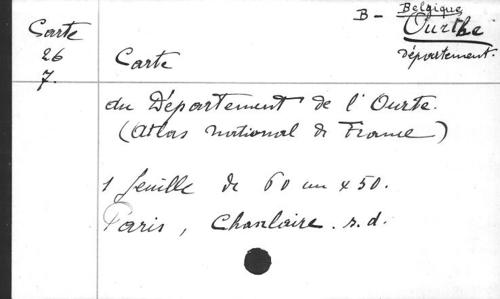 B - Belgique
Ourthe
département.
Carte
26
7.
Carte
du Département de l'Ourte.
(Atlas national de France)
1 feuille de 60 cm x 50.
Paris, Chanlaire. s.d.